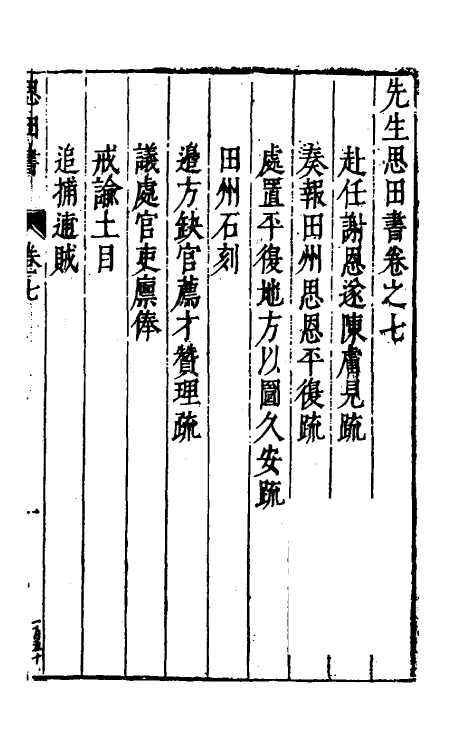 先生思田書卷之七
赴任謝恩遂陳膚見疏
奏報田州思恩平復疏
處置平復地方以圖久安疏
田州石刻
邊方缺官薦才贊理疏
議處官吏廪俸
戒諭土目
追捕逋賊
思田書
卷七
一